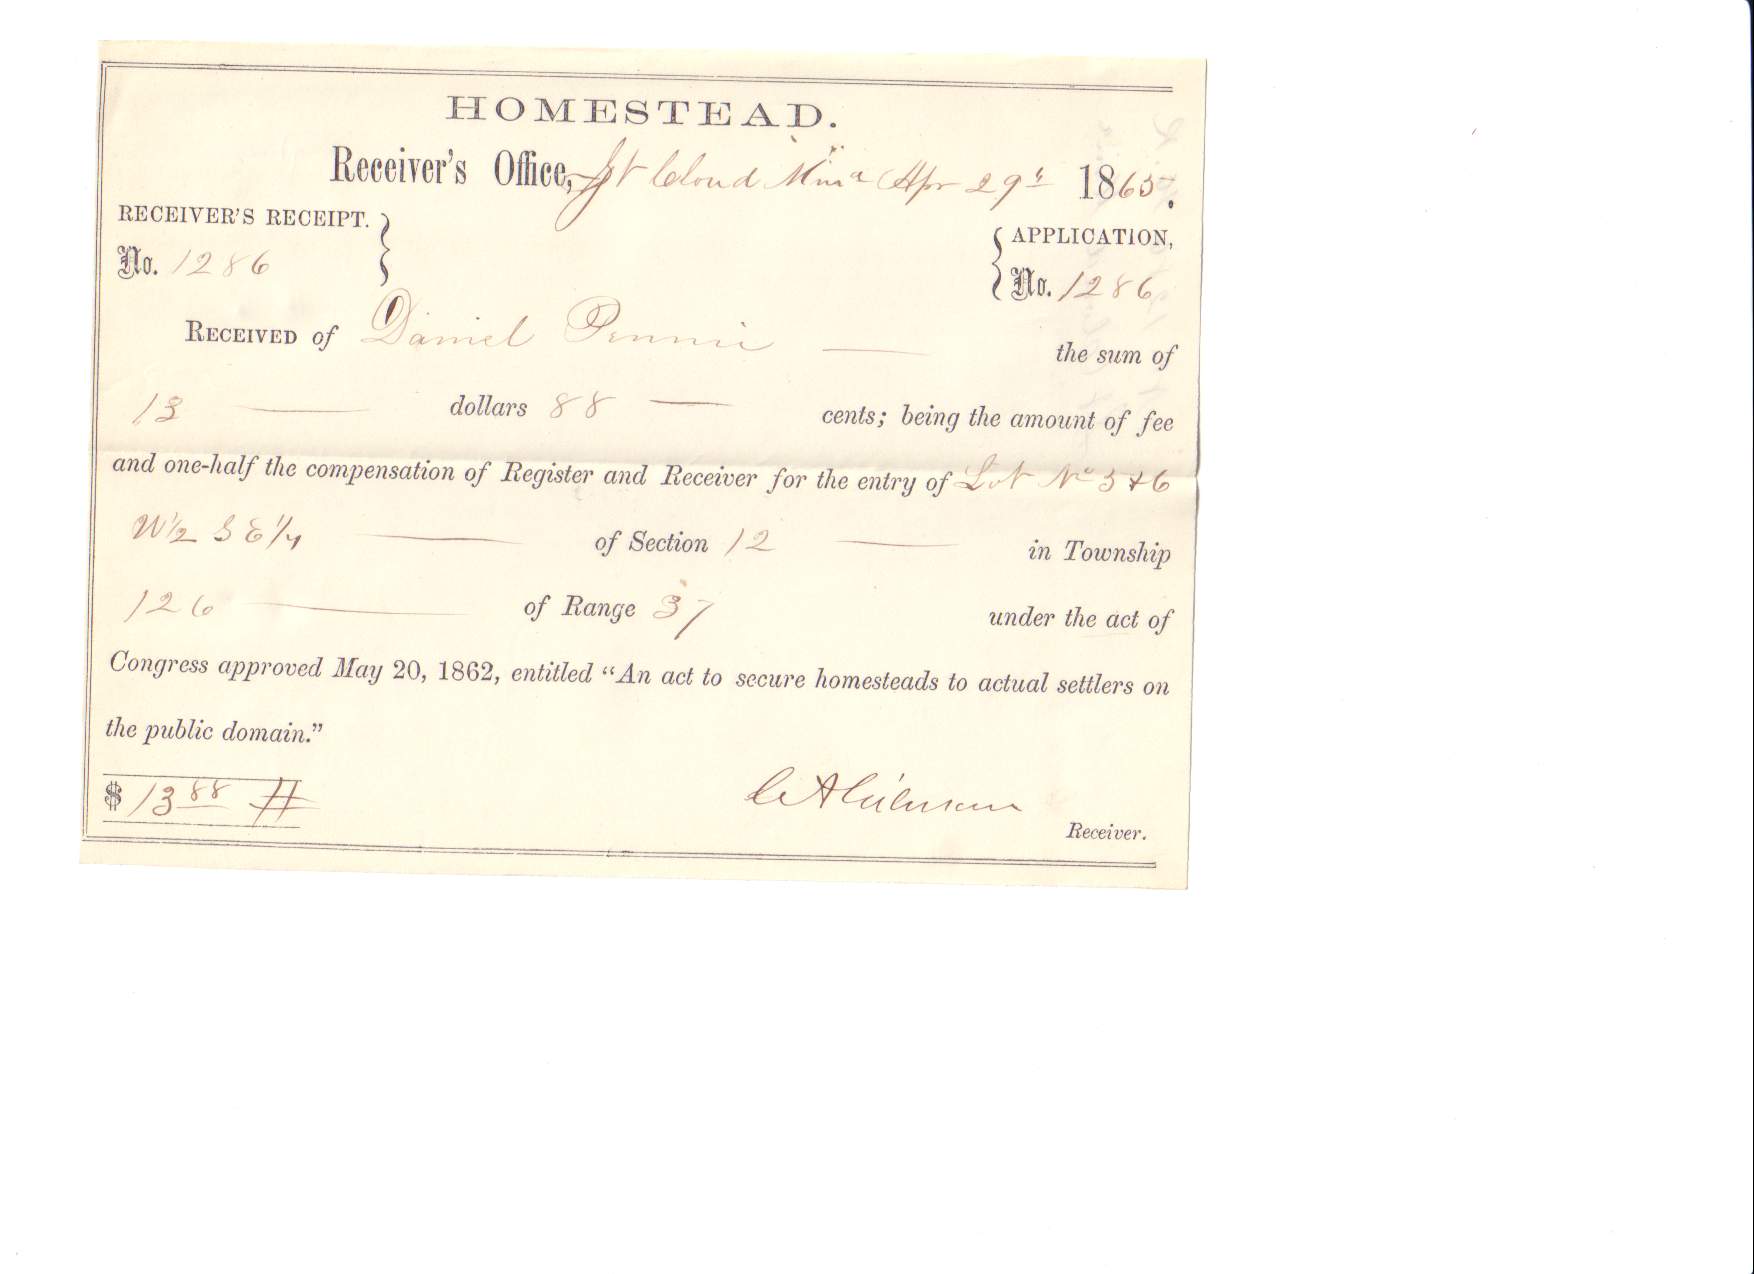 HOMESTEAD.
Receiver's Office, St Cloud Mina Apr 29th 1865.
RECEIVER'S RECEIPT. } { APPLICATION,
No. 1286 No. 1286
RECEIVED of Daniel Pennie — the sum of
13 — dollars 88 — cents; being the amount of fee
and one-half the compensation of Register and Receiver for the entry of Lot No 5 & 6
W 1/2 S E 1/4 — of Section 12 — in Township
126 — of Range 37 under the act of
Congress approved May 20, 1862, entitled “An act to secure homesteads to actual settlers on
the public domain.”
$ 13 88 C A Gilman
Receiver.